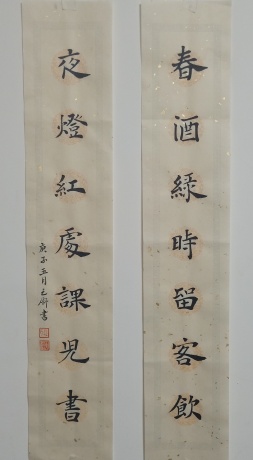 春酒綠時留客飲
夜燈紅處課兒書
庚子五月